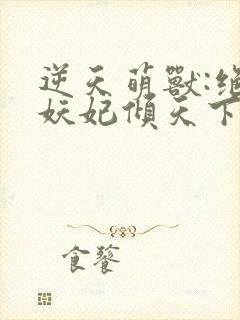 逆天萌獸:绝
妖妃傾天下
食饕